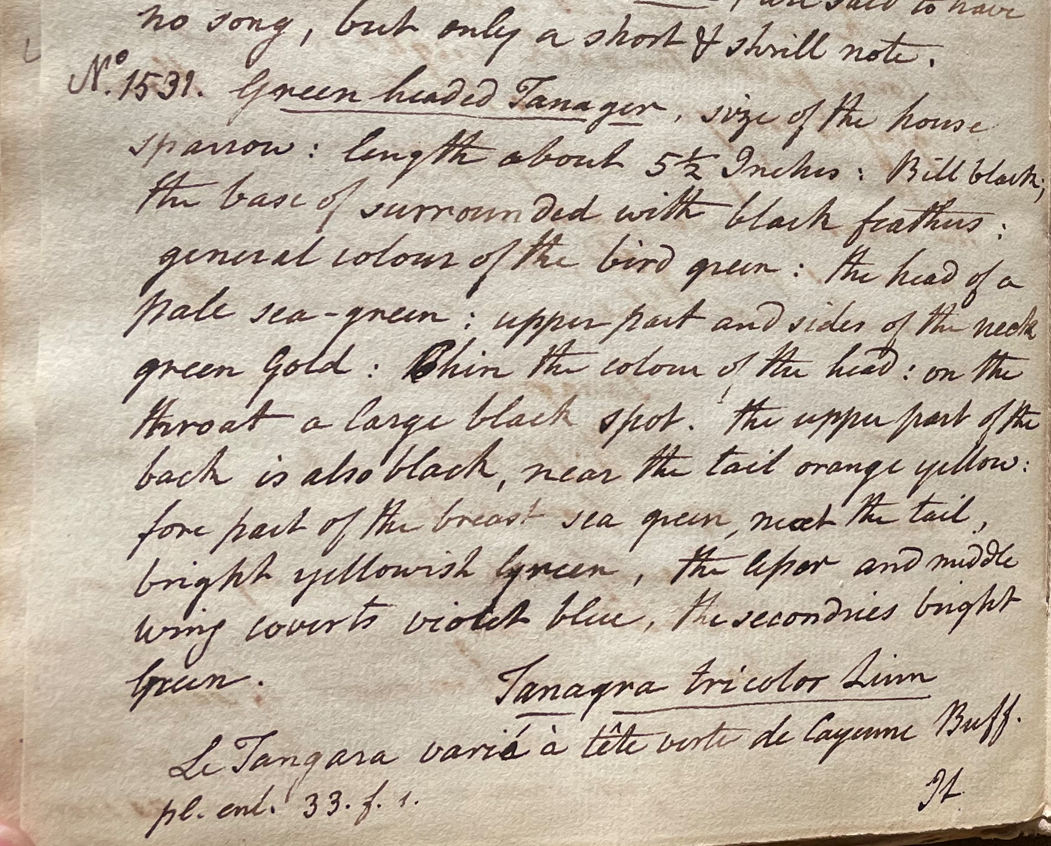 are said to have
no song, but only a short & shrill note.
No. 1531. Green headed Tanager, size of the house
sparrow: length about 5½ Inches: Bill black;
the base of surrounded with black feathers:
general colour of the bird green: the head of a
pale sea-green: upper part and sides of the neck
green Gold: Chin the colour of the head: on the
throat a large black spot. the upper part of the
back is also black, near the tail orange yellow:
fore part of the breast sea green, next the tail,
bright yellowish Green, the lesser and middle
wing coverts violet blue, the secondries bright
Green.
Tanagra tricolor Linn
Le Tangara varié à tête verte de Cayenne Buff.
pl. enl. 33. f. 1.
It